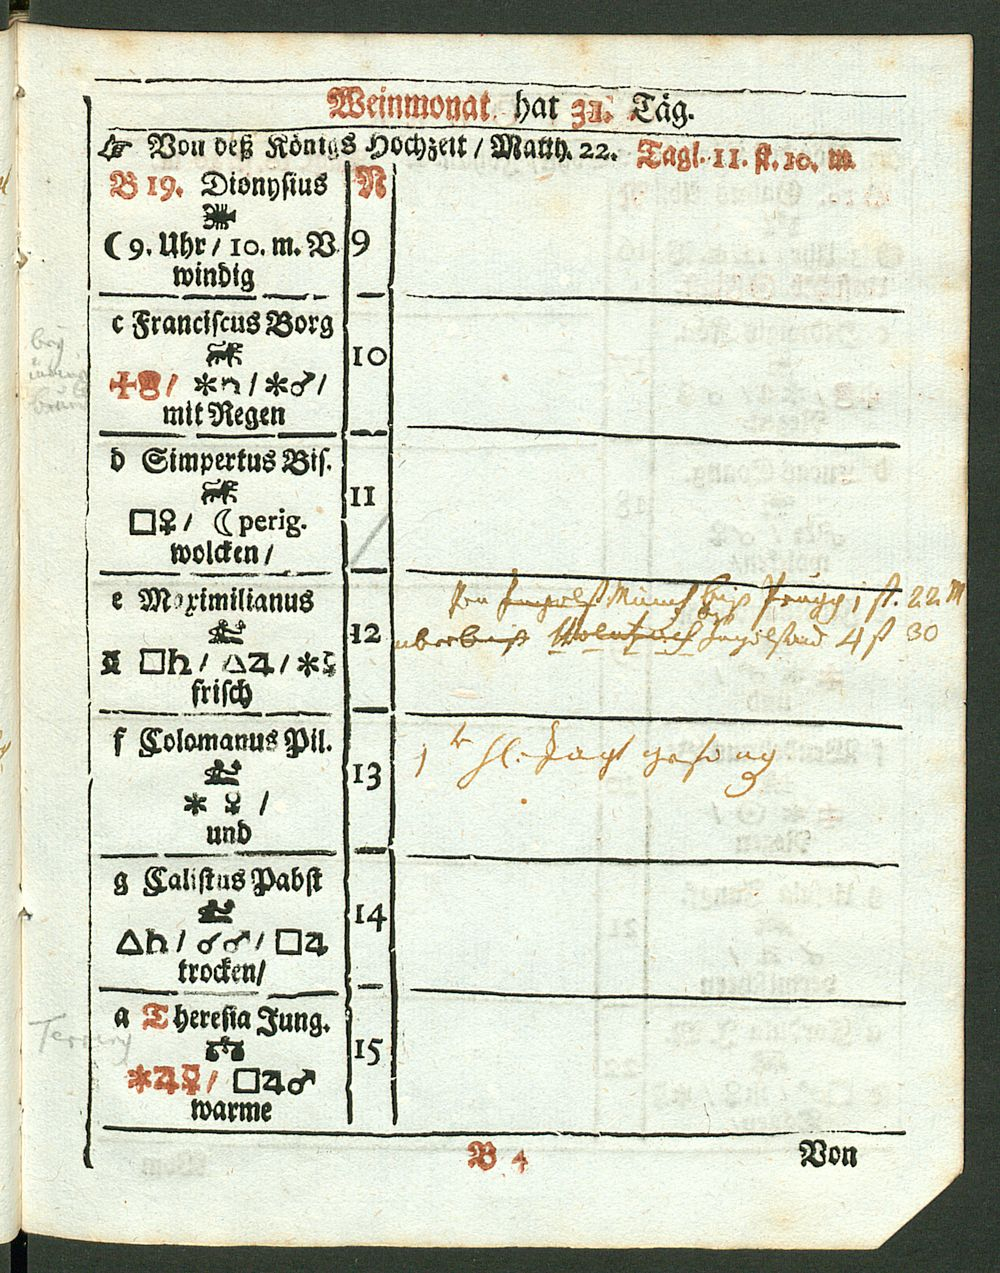 Weinmonat hat 31. Täg.
☞ Von deß Königs Hochzeit / Matth. 22. Tagl. 11. st. 10. m
B 19. Dionysius N
♋
☾ 9. Uhr / 10. m. V 9
windig
c Franciscus Borg
♌ 10
✠ / ✶ / ✶♂ /
mit Regen
d Simpertus Bis.
♌ 11
□♀ / ☾ perig.
wolcken /
e Maximilianus
♍ 12
□♄ / △♃ / ✶☿
frisch
Von Münch biß Prugg 1 st. 22 M
Ingolstad 4 st 30
f Colomanus Pil.
♍ 13
✶ ♀ /
und
hl. Jagt
g Calistus Pabst
♍ 14
△♄ / ☌♂ / □♃
trocken /
a Theresia Jung.
♎ 15
✶♃☿ / □♃♂
warme
B 4 Von